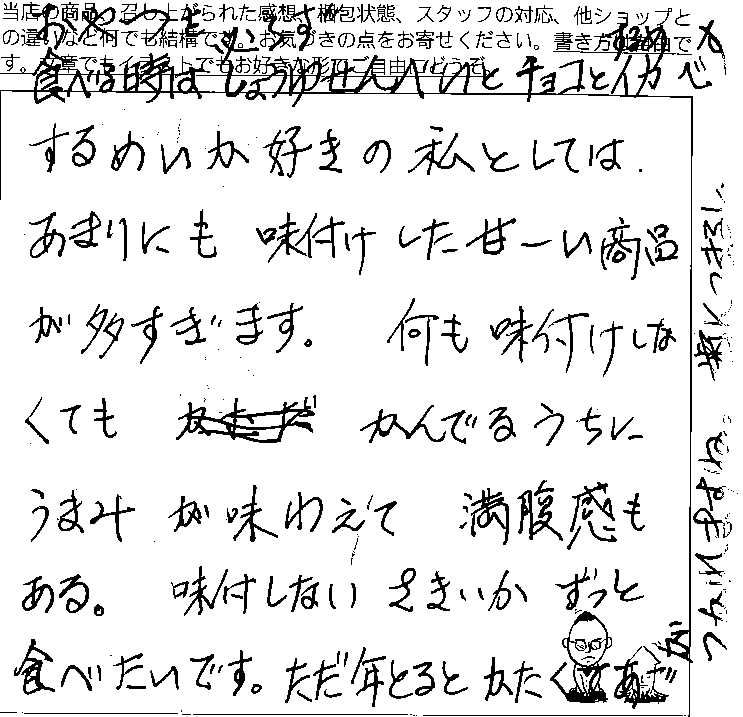 当店の商品、召し上がられた感想、梱包状態、スタッフの対応、他ショップと
の違いなど何でも結構です。お気づきの点をお寄せください。書き方は自由で
す。文章でもイラストでもお好きな形でご自由にどうぞ
おやつを 必らず
食べる時は、しょうゆせんべいとチョコとイカ
するめいか好きの私としては、
あまりにも 味付けした甘ーい商品
が多すぎます。 何も味付けしな
くても かんでるうちに
うまみが味わえて 満腹感も
ある。 味付しないさきいかずっと
食べたいです。ただ年とるとかたくて